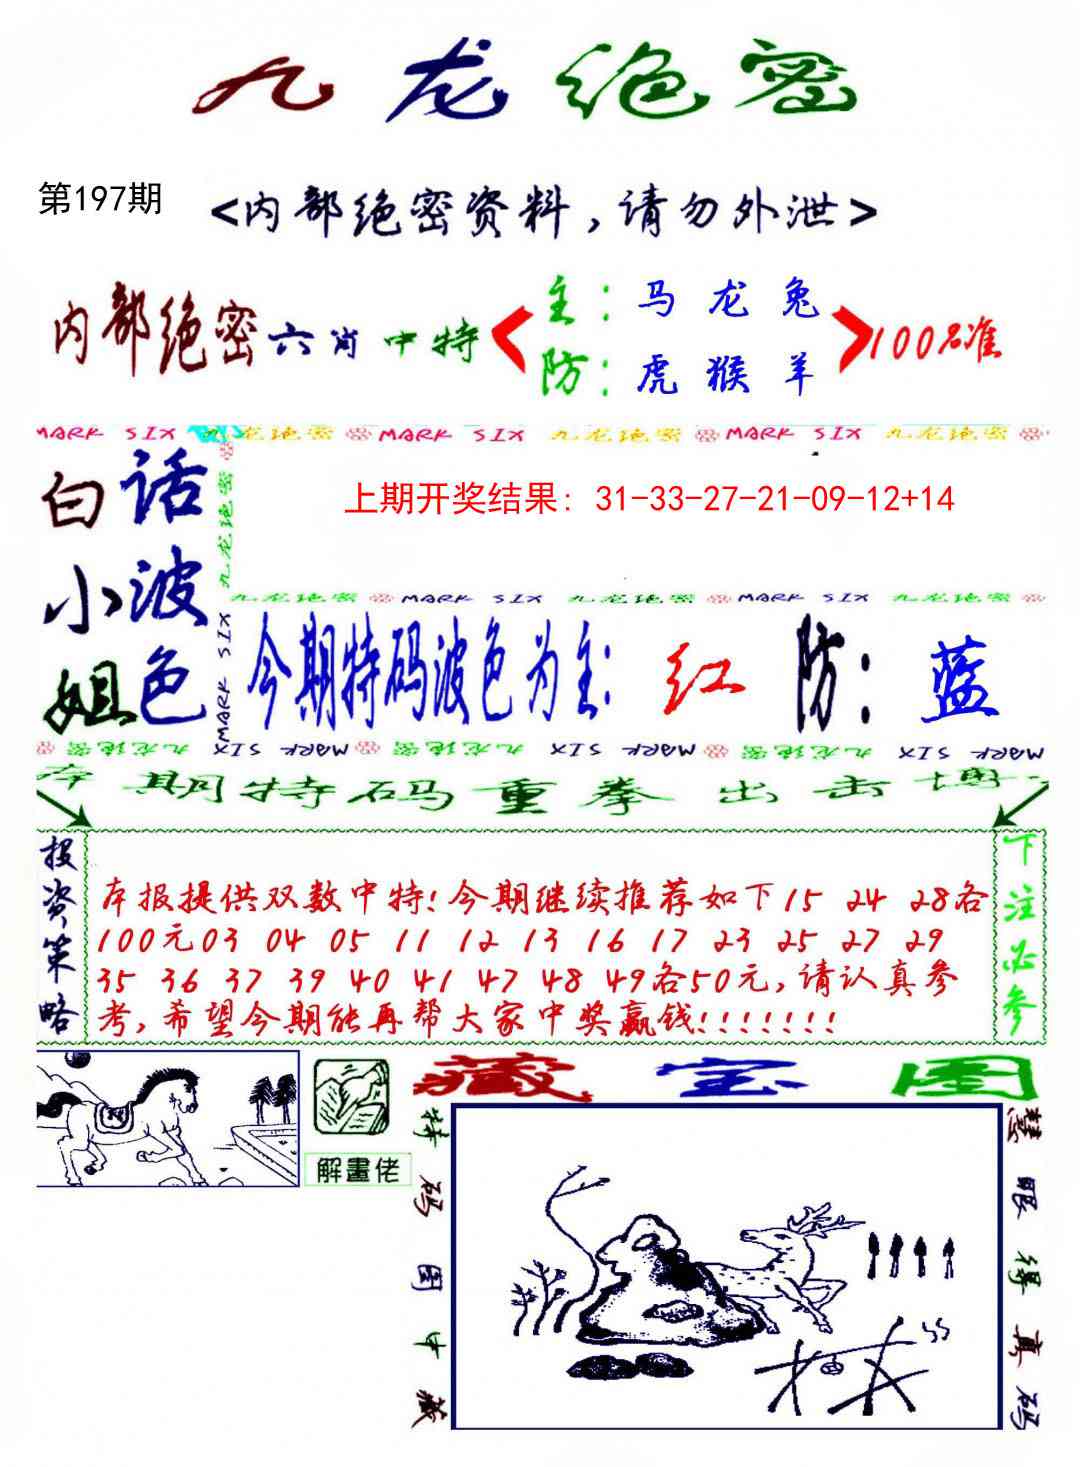 九龙绝密
第197期
<内部绝密资料,请勿外泄>
内部绝密六肖中特
主:马龙兔
防:虎猴羊
100%准
MARK SIX 九龙绝密 MARK SIX 九龙绝密 MARK SIX 九龙绝密
白话
小波
姐色
九龙绝密
MARK SIX
上期开奖结果: 31-33-27-21-09-12+14
九龙绝密 MARK SIX 九龙绝密 MARK SIX 九龙绝密
今期特码波色为主: 红 防: 蓝
九龙绝密 MARK SIX 九龙绝密 MARK SIX 九龙绝密 MARK SIX
本期特码重拳出击博
投资策略
本报提供双数中特!今期继续推荐如下15 24 28各
100元03 04 05 11 12 13 16 17 23 25 27 29
35 36 37 39 40 41 47 48 49各50元,请认真参
考,希望今期能再帮大家中奖赢钱!!!!!!!
下注必参
解畫佬
藏宝图
特码图中藏
慧眼得真码